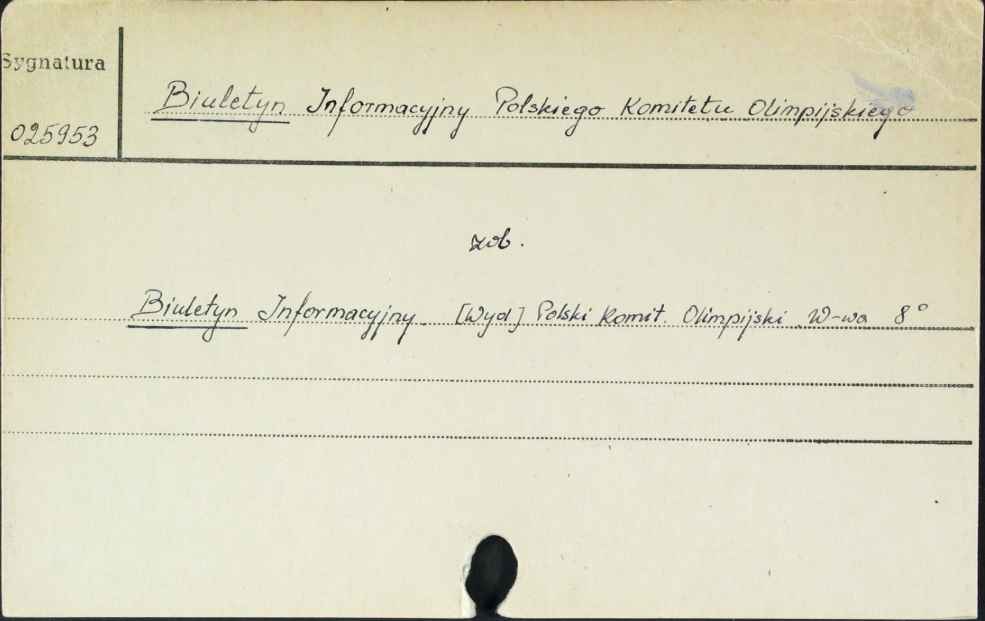 Sygnatura
025953
Biuletyn Informacyjny Polskiego Komitetu Olimpijskiego
zob.
Biuletyn Informacyjny [Wyd] Polski Komit. Olimpijski. W-wa 8°